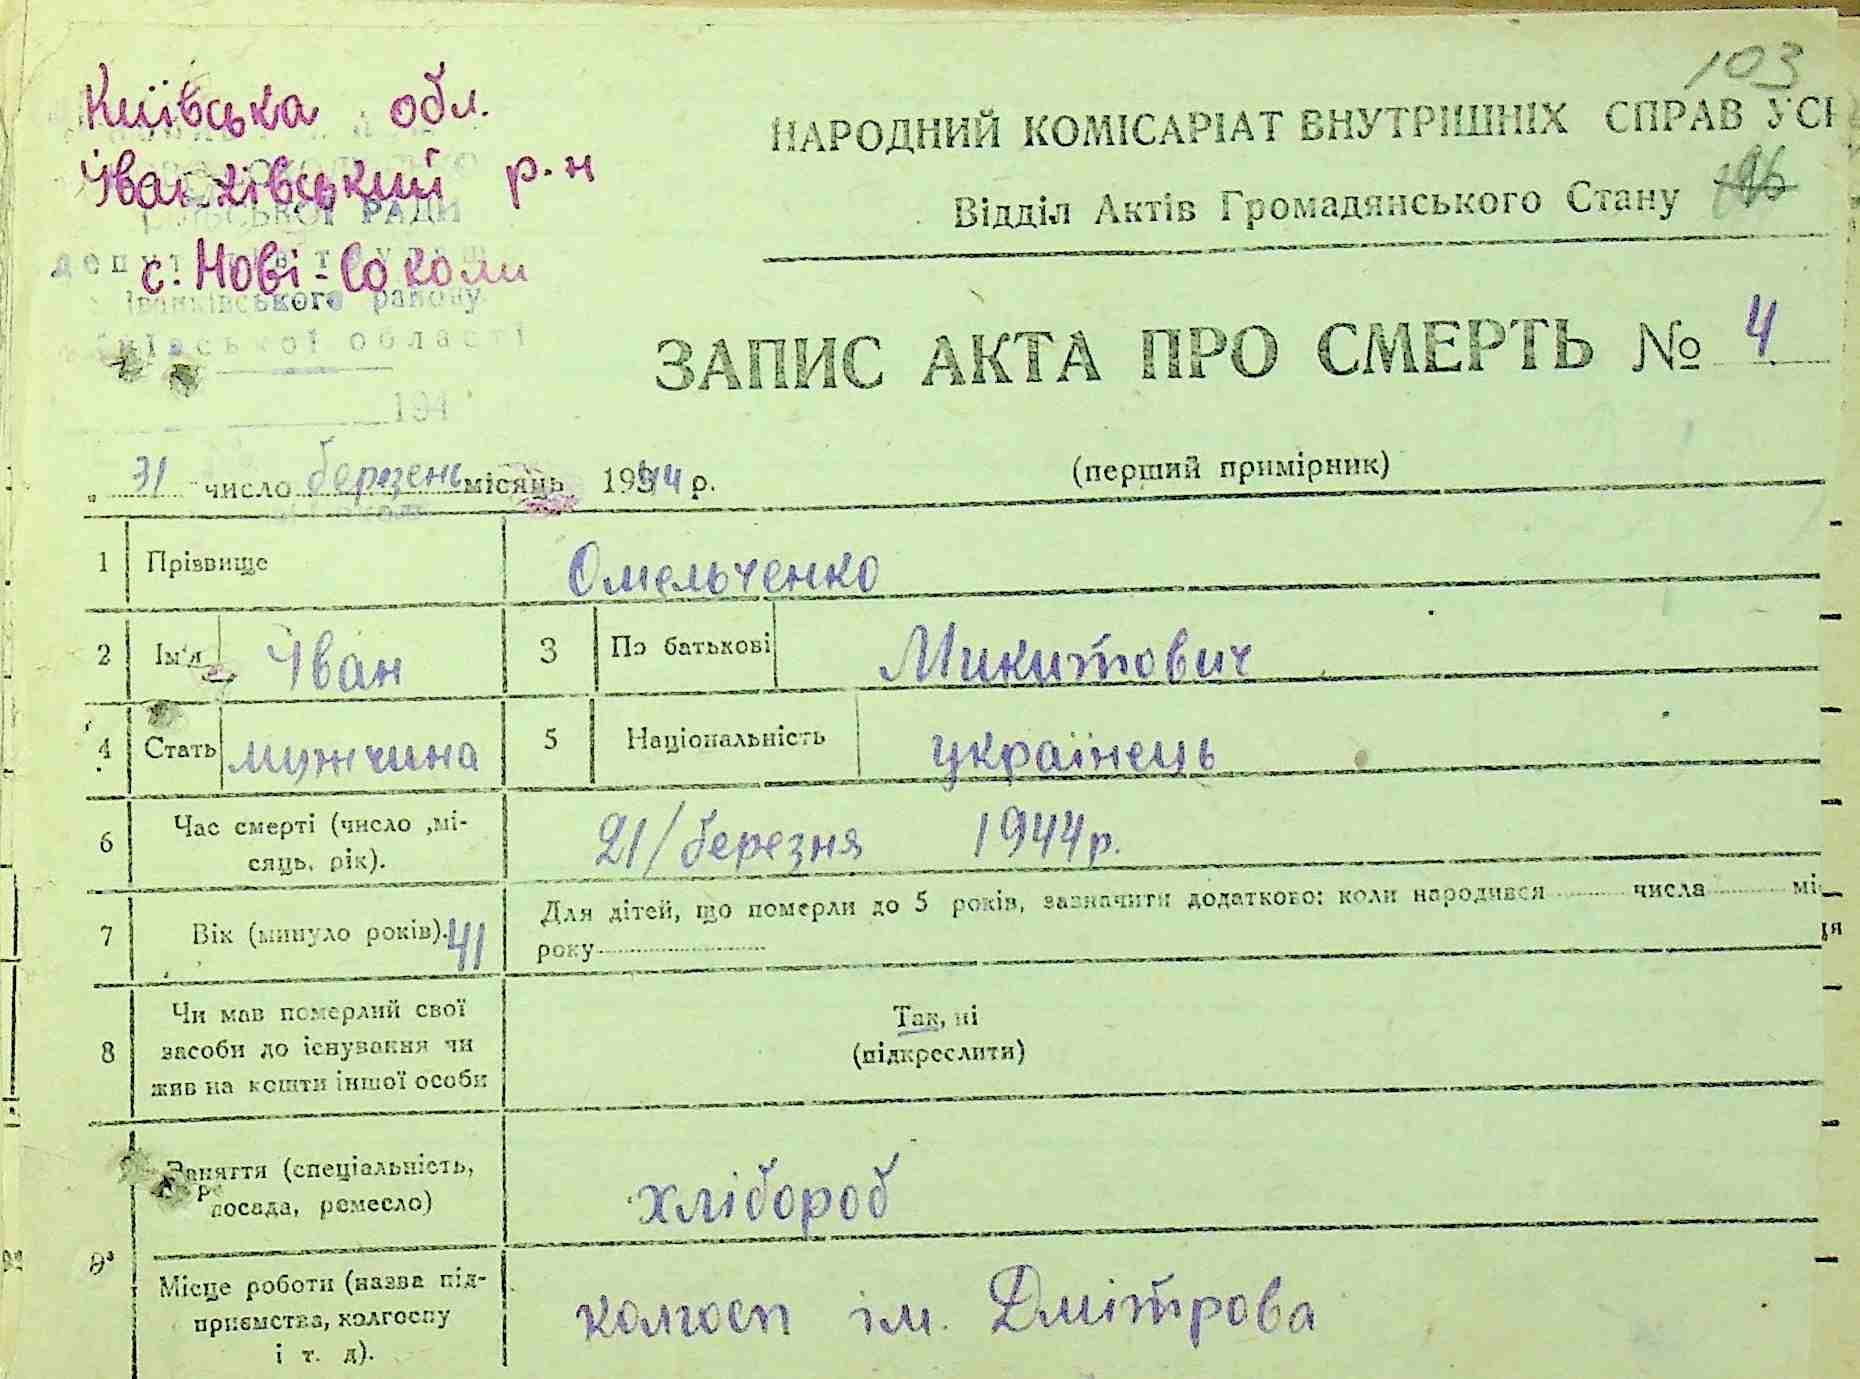 103
Київська обл.
Іванківський р-н
с. Нові-Соколи
НАРОДНИЙ КОМІСАРІАТ ВНУТРІШНІХ СПРАВ УСР
Відділ Актів Громадянського Стану
СЬКОЇ РАДИ
Іванківського району
Київської області
194
ЗАПИС АКТА ПРО СМЕРТЬ № 4
(перший примірник)
„ 31 число березень місяць 1944 р.
1 Прізвище Омельченко
2 Ім'я Іван 3 По батькові Микитович
4 Стать мужчина 5 Національність українець
6 Час смерті (число ,мі-
сяць, рік). 21/березня 1944р.
7 Вік (минуло років). 41 Для дітей, що померли до 5 років, зазначити додатково: коли народився числа мі
року
ця
8 Чи мав померлий свої
засоби до існування чи
жив на кошти іншої особи
Так, ні
(підкреслити)
Заняття (спеціальність,
посада, ремесло) хлібороб
9
Місце роботи (назва під-
приємства, колгоспу
і т. д). колгосп ім. Дмітрова